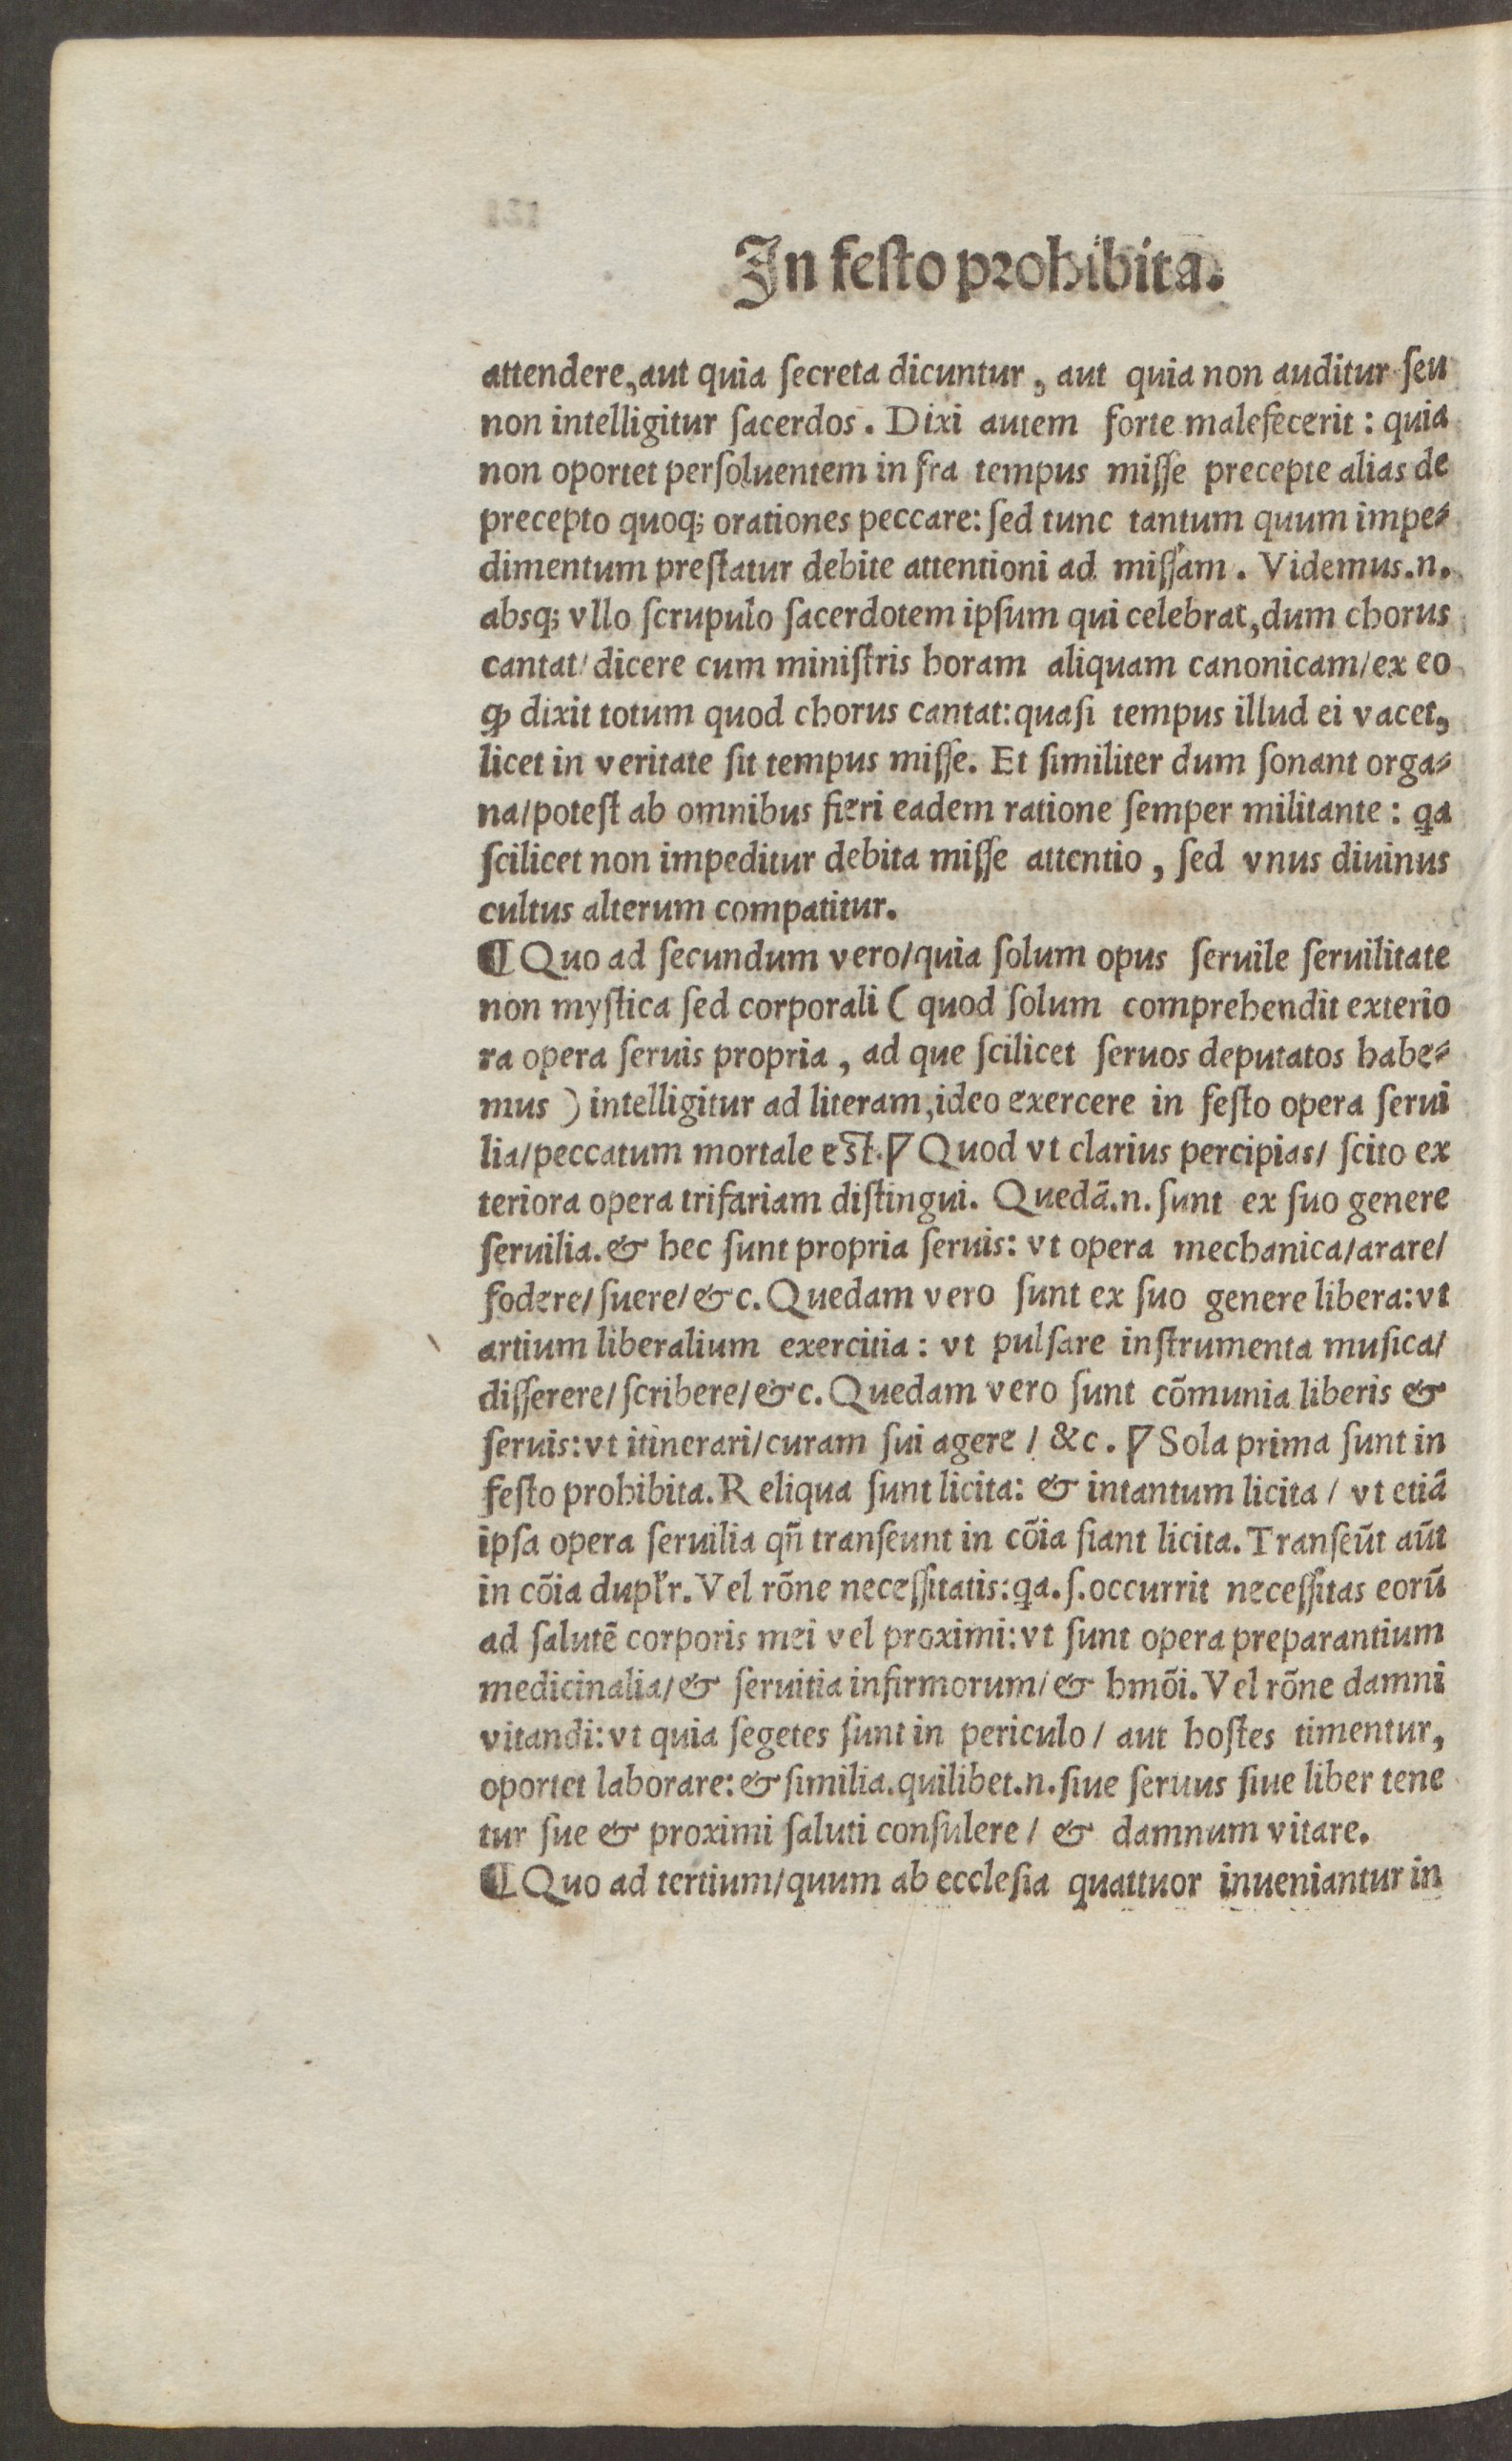 In festo prohibita.
attendere, aut quia ſecreta dicuntur, aut quia non auditur ſeu
non intelligitur ſacerdos. Dixi autem forte malefecerit: quia
non oportet perſoluentem in fra tempus miſſe precepte alias de
precepto quoq; orationes peccare: ſed tunc tantum quum impe⸗
dimentum preſtatur debite attentioni ad miſſam. Videmus.n.
absq; vllo ſcrupulo ſacerdotem ipſum qui celebrat, dum chorus
cantat/ dicere cum miniſtris horam aliquam canonicam/ ex eo
ꝙ dixit totum quod chorus cantat: quaſi tempus illud ei vacet,
licet in veritate ſit tempus miſſe. Et ſimiliter dum ſonant orga⸗
na/ poteſt ab omnibus fieri eadem ratione ſemper militante: ꝗa
ſcilicet non impeditur debita miſſe attentio, ſed vnus diuinus
cultus alterum compatitur.
¶ Quo ad ſecundum vero/ quia ſolum opus ſeruile ſeruilitate
non myſtica ſed corporali ( quod ſolum comprehendit exterio
ra opera ſeruis propria, ad que ſcilicet ſeruos deputatos habe⸗
mus ) intelligitur ad literam, ideo exercere in feſto opera ſerui
lia/ peccatum mortale eſt. ℣ Quod vt clarius percipias/ ſcito ex
teriora opera trifariam diſtingui. Quedã.n. ſunt ex ſuo genere
ſeruilia. & hec ſunt propria ſeruis: vt opera mechanica/ arare/
fodere/ ſuere/ &c. Quedam vero ſunt ex ſuo genere libera: vt
artium liberalium exercitia: vt pulſare inſtrumenta muſica/
diſſerere/ ſcribere/ &c. Quedam vero ſunt cõmunia liberis &
ſeruis: vt itinerari/ curam ſui agere / &c. ℣ Sola prima ſunt in
feſto prohibita. R eliqua ſunt licita: & intantum licita / vt etiã
ipſa opera ſeruilia qñ tranſeunt in cõia fiant licita. Tranſeũt aũt
in cõia duplr̃. Vel rõne neceſſitatis: ꝗa. ſ. occurrit neceſſitas eorũ
ad ſalutẽ corporis mei vel proximi: vt ſunt opera preparantium
medicinalia/ & ſeruitia infirmorum/ & hmõi. Vel rõne damni
vitandi: vt quia ſegetes ſunt in periculo / aut hoſtes timentur,
oportet laborare: & ſimilia. quilibet.n. ſiue ſeruus ſiue liber tene
tur ſue & proximi ſaluti conſulere / & damnum vitare.
¶ Quo ad tertium/ quum ab eccleſia quattuor inueniantur in